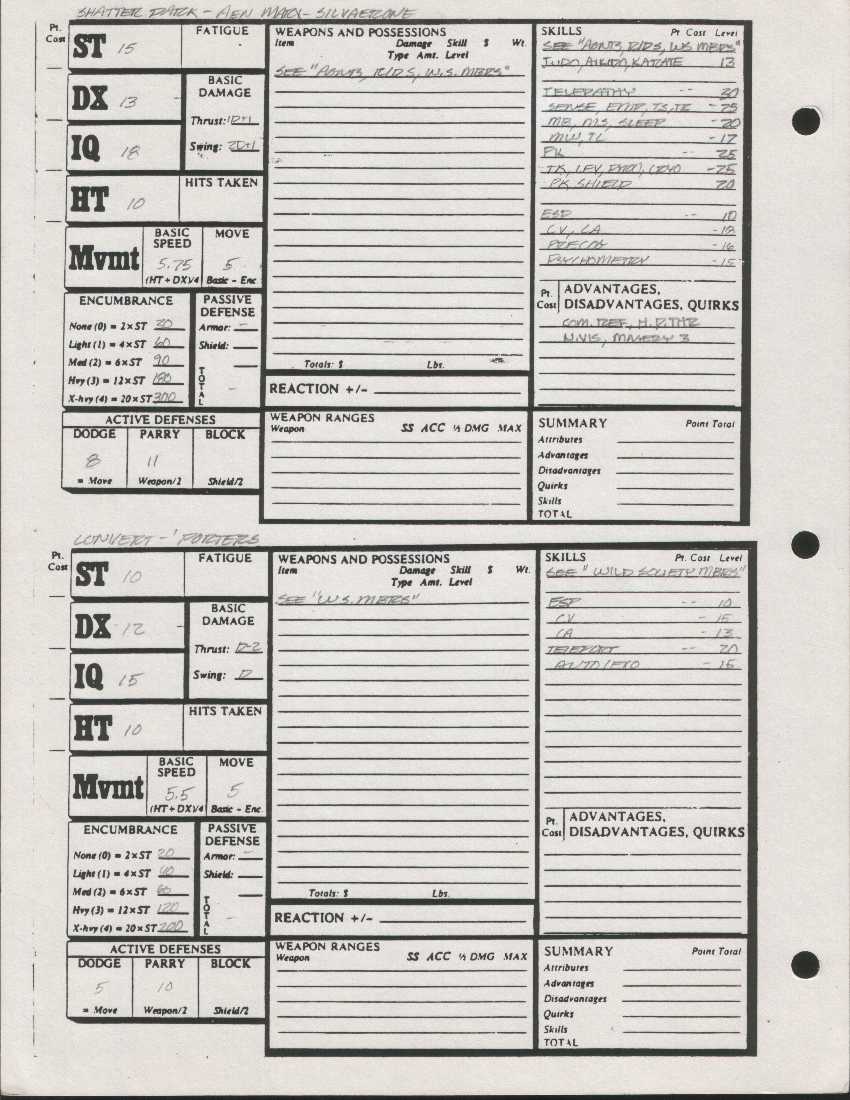 SHATTER DARK - AEN MARX - SILVAERONE
Pt. Cost
ST 15
FATIGUE
DX 13
BASIC DAMAGE
Thrust: 1D+1
Swing: 2D+1
IQ 18
HT 10
HITS TAKEN
Mvmt
BASIC SPEED
5.75
(HT + DX)/4
MOVE
5
Basic - Enc
ENCUMBRANCE
None (0) = 2×ST 30
Light (1) = 4×ST 60
Med (2) = 6×ST 90
Hvy (3) = 12×ST 180
X-hvy (4) = 20×ST 300
PASSIVE DEFENSE
Armor: -
Shield: -
TOTAL -
ACTIVE DEFENSES
DODGE PARRY BLOCK
8 11
= Move Weapon/2 Shield/2
WEAPONS AND POSSESSIONS
Item Damage Skill $ Wt.
Type Amt. Level
Totals: $ Lbs.
REACTION +/-
WEAPON RANGES
Weapon SS ACC ½ DMG MAX
SKILLS Pt. Cost Level
JUDO, AIKIDO, KARATE 13
TELEPATHY -- 30
SENSE, EMP, TS, TR -25
MB, MS, SLEEP -20
MW, TC -17
PK -- 25
TK, LEV, PYRO, CRYO -25
PK SHIELD 20
ESP -- 10
CV, CA -18
PRECOG -16
PSYCHOMETRY -15
Pt. Cost
ADVANTAGES, DISADVANTAGES, QUIRKS
COM. REF, H. P. THR
N.VIS, MAGERY 3
SUMMARY Point Total
Attributes
Advantages
Disadvantages
Quirks
Skills
TOTAL
CONVERT - 'PORTERS
Pt. Cost
ST 10
FATIGUE
DX 12
BASIC DAMAGE
Thrust: D-2
Swing: D
IQ 15
HT 10
HITS TAKEN
Mvmt
BASIC SPEED
5.5
(HT + DX)/4
MOVE
5
Basic - Enc.
ENCUMBRANCE
None (0) = 2×ST 20
Light (1) = 4×ST 40
Med (2) = 6×ST 60
Hvy (3) = 12×ST 120
X-hvy (4) = 20×ST 200
PASSIVE DEFENSE
Armor: -
Shield:
TOTAL -
ACTIVE DEFENSES
DODGE PARRY BLOCK
5 10
= Move Weapon/2 Shield/2
WEAPONS AND POSSESSIONS
Item Damage Skill $ Wt.
Type Amt. Level
SEE "W.S. MBRS"
Totals: $ Lbs.
REACTION +/-
WEAPON RANGES
Weapon SS ACC ½ DMG MAX
SKILLS Pt. Cost Level
SEE "WILD SOCIETY MBRS"
ESP -- 10
CV - 15
CA - 13
TELEPORT -- 20
AUTO/EXO - 15
Pt. Cost
ADVANTAGES, DISADVANTAGES, QUIRKS
SUMMARY Point Total
Attributes
Advantages
Disadvantages
Quirks
Skills
TOTAL